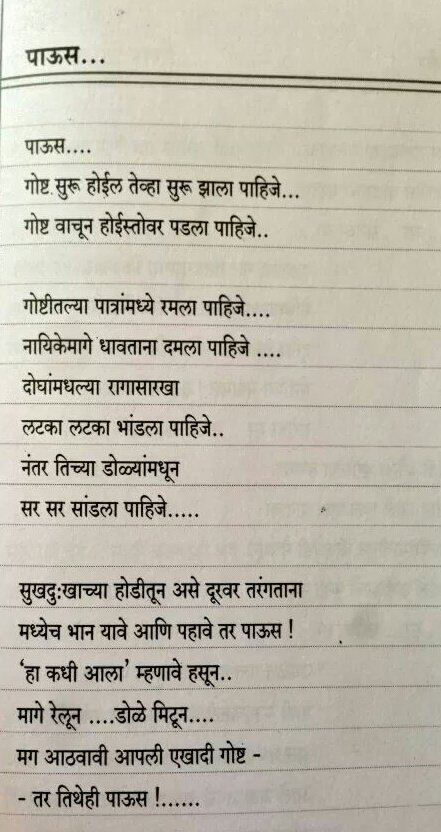 पाऊस...
पाऊस....
गोष्ट सुरू होईल तेव्हा सुरू झाला पाहिजे...
गोष्ट वाचून होईस्तोवर पडला पाहिजे..
गोष्टीतल्या पात्रांमध्ये रमला पाहिजे....
नायिकेमागे धावताना दमला पाहिजे ....
दोघांमधल्या रागासारखा
लटका लटका भांडला पाहिजे..
नंतर तिच्या डोळ्यांमधून
सर सर सांडला पाहिजे.....
सुखदुःखाच्या होडीतून असे दूरवर तरंगताना
मध्येच भान यावे आणि पहावे तर पाऊस !
‘हा कधी आला’ म्हणावे हसून..
मागे रेलून ....डोळे मिटून....
मग आठवावी आपली एखादी गोष्ट -
- तर तिथेही पाऊस !......